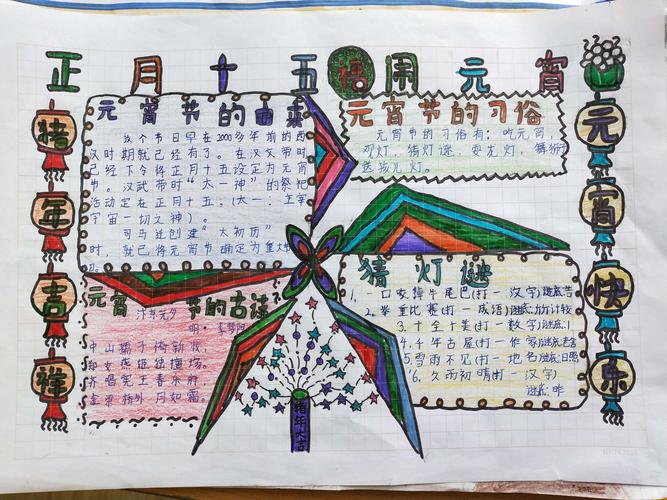 正月十五闹元宵
猪年吉祥
元宵快乐
元宵节的由来
这个节日早在2000多年前的西
汉时期就已经有了。在汉文帝时
已经下令将正月十五设定为元宵
节。汉武帝时"太一神"的祭祀
活动定在正月十五。(太一：主宰
宇宙一切之神)。
司马迁创建"太初历"
时，就已将元宵节确定为重大节
日。
元宵节的习俗
元宵节的习俗有：吃元宵，
观灯，猜灯谜，耍龙灯，舞狮子
送孩儿灯。
元宵节的古诗
汴京元夕
明·李梦阳
中山孺子倚新妆，
郑女燕姬独擅场。
齐唱宪王春乐府
金梁桥外月如霜。
猜灯谜
1、一口咬掉牛尾巴(打一汉字)谜底：告
2、举重比赛(打一成语)谜底：
3、十全十美(打一数字)谜底：1
4、千年古屋(打一作家)谜底：老舍
5、雪雨不见(打一地名)谜底：日照
6、久雨初晴(打一汉字)
谜底：昨
猪年大吉